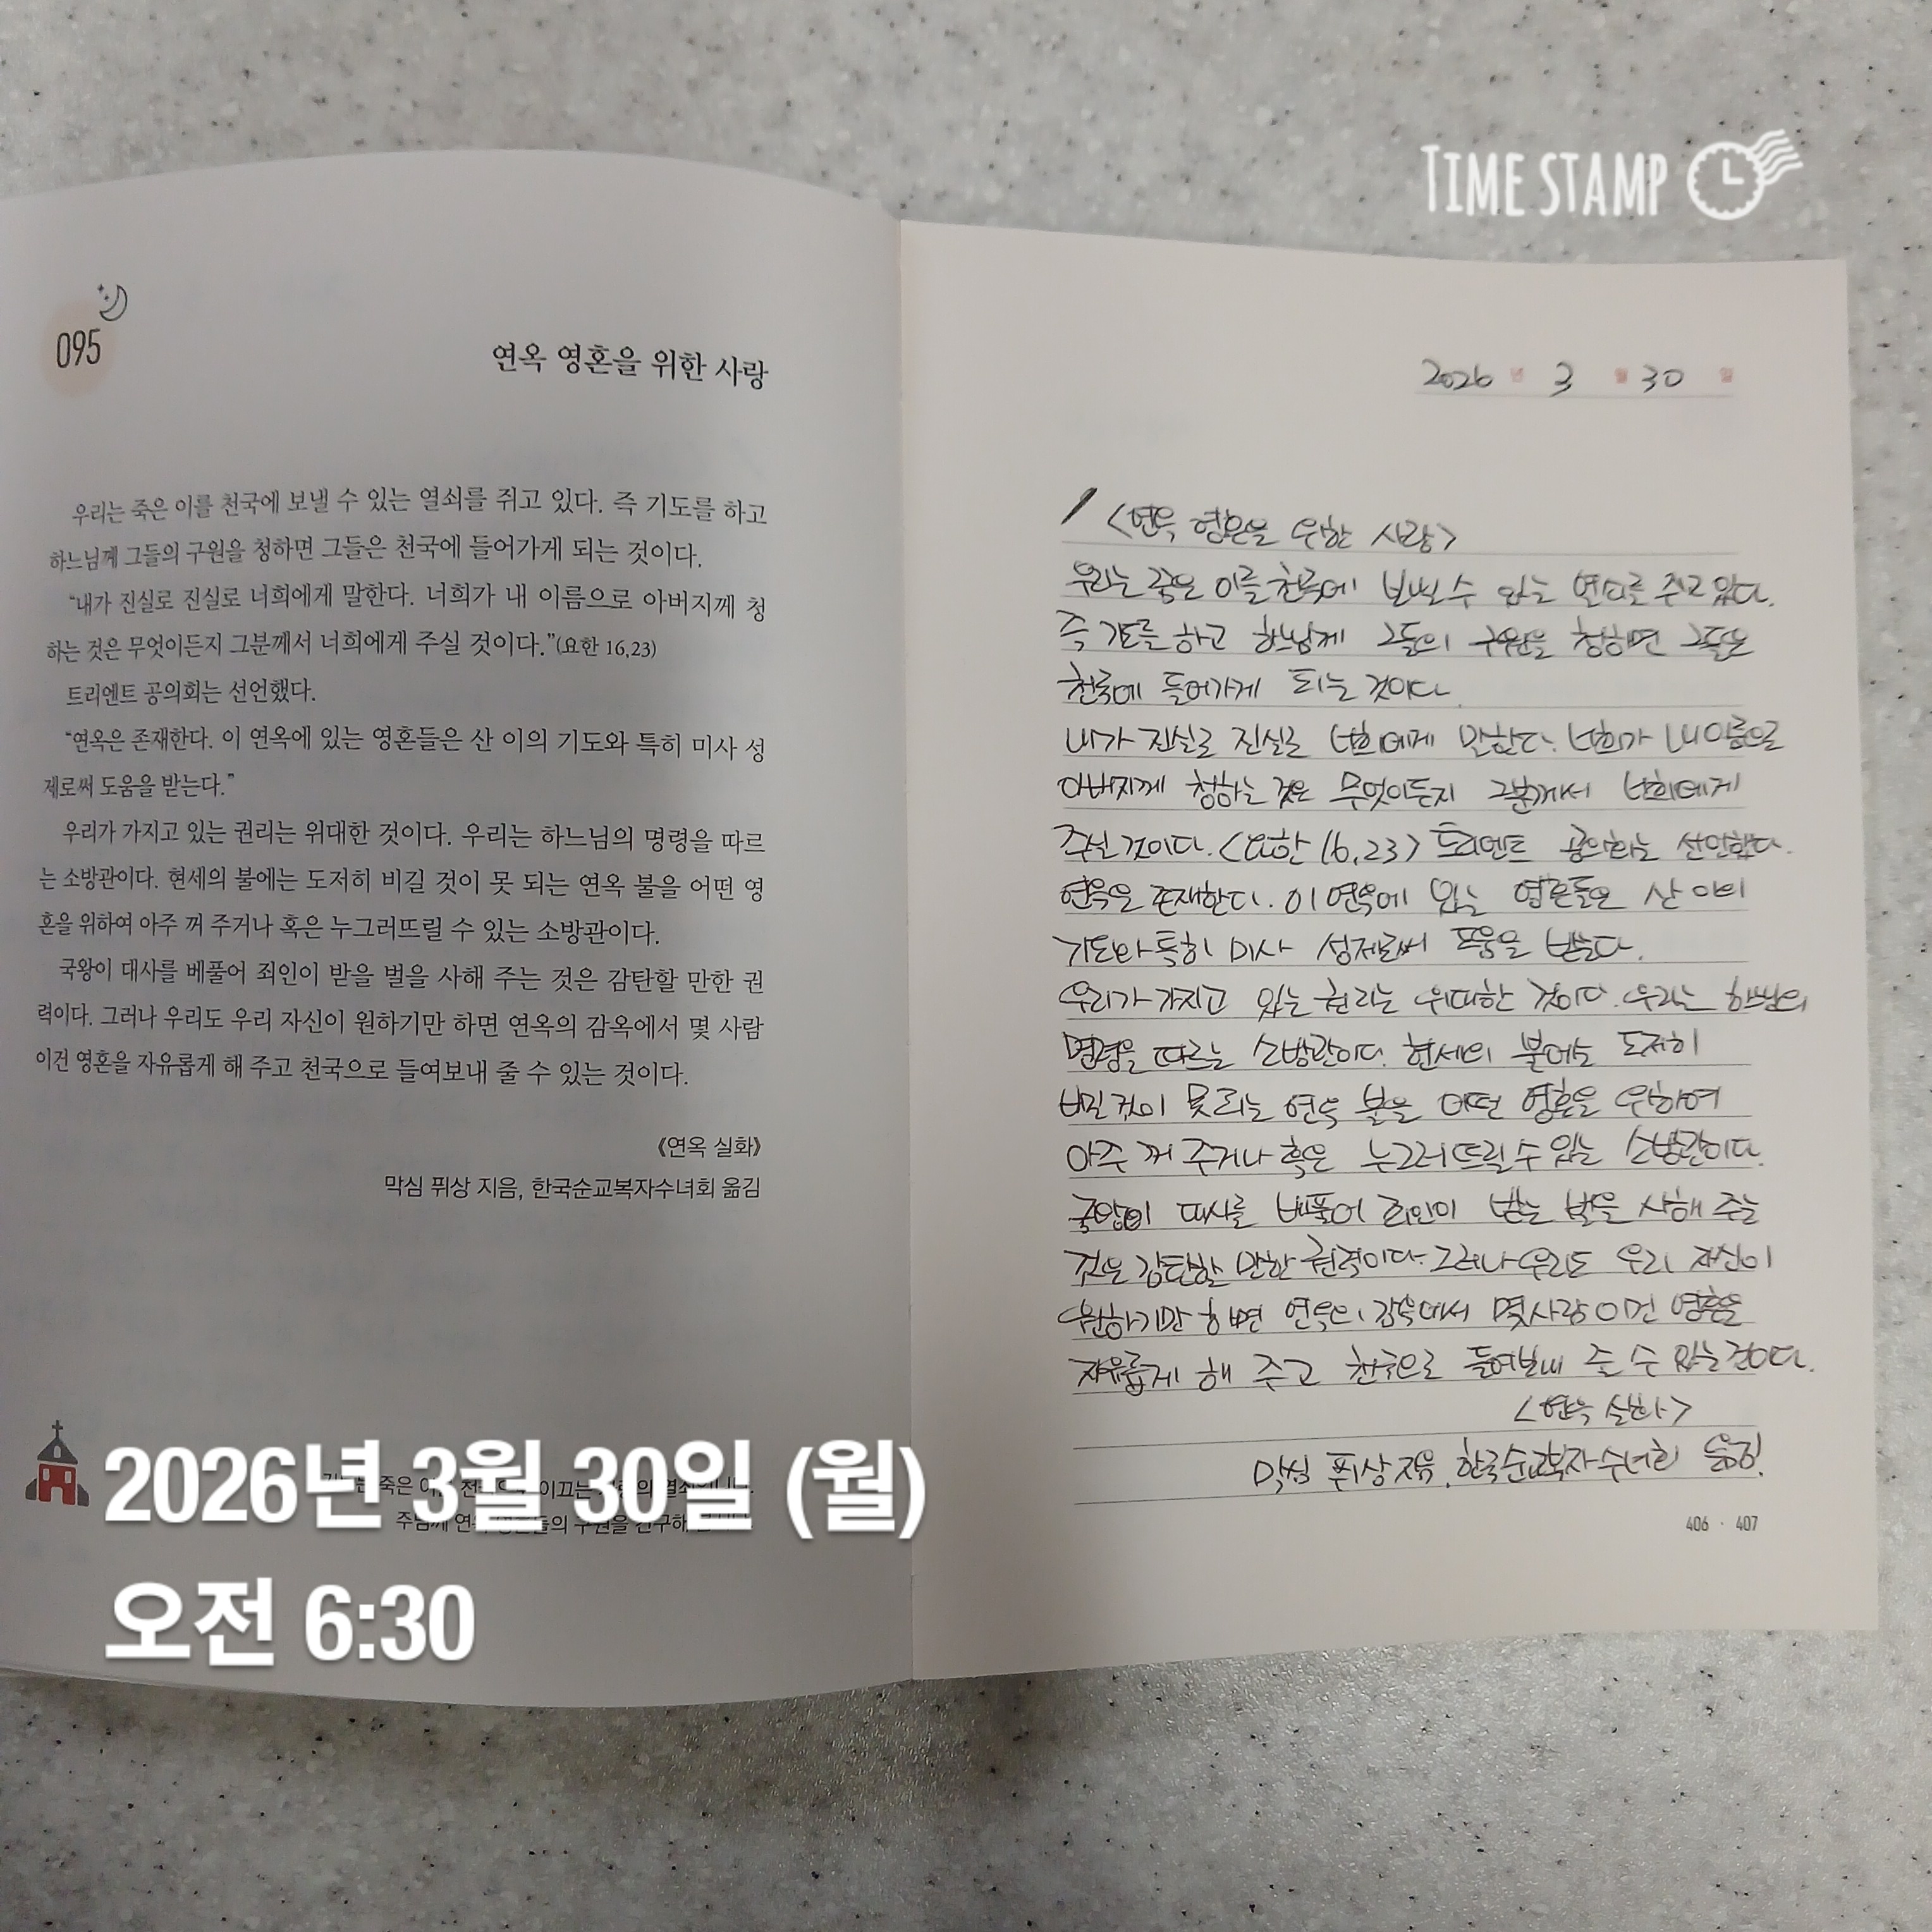 TIME STAMP
095
연옥 영혼을 위한 사랑
우리는 죽은 이를 천국에 보낼 수 있는 열쇠를 쥐고 있다. 즉 기도를 하고
하느님께 그들의 구원을 청하면 그들은 천국에 들어가게 되는 것이다.
“내가 진실로 진실로 너희에게 말한다. 너희가 내 이름으로 아버지께 청
하는 것은 무엇이든지 그분께서 너희에게 주실 것이다.”(요한 16,23)
트리엔트 공의회는 선언했다.
“연옥은 존재한다. 이 연옥에 있는 영혼들은 산 이의 기도와 특히 미사 성
제로써 도움을 받는다.”
우리가 가지고 있는 권리는 위대한 것이다. 우리는 하느님의 명령을 따르
는 소방관이다. 현세의 불에는 도저히 비길 것이 못 되는 연옥 불을 어떤 영
혼을 위하여 아주 꺼 주거나 혹은 누그러뜨릴 수 있는 소방관이다.
국왕이 대사를 베풀어 죄인이 받을 벌을 사해 주는 것은 감탄할 만한 권
력이다. 그러나 우리도 우리 자신이 원하기만 하면 연옥의 감옥에서 몇 사람
이건 영혼을 자유롭게 해 주고 천국으로 들여보내 줄 수 있는 것이다.
《연옥 실화》
막심 퓌상 지음, 한국순교복자수녀회 옮김
죽은
주님께 연옥 영혼들의 구원을
2026년 3월 30일 (월)
오전 6:30
2026 년 3 월 30 일
<연옥 영혼을 위한 사랑>
우리는 죽은 이를 천국에 보낼 수 있는 열쇠를 쥐고 있다.
즉 기도를 하고 하느님께 그들의 구원을 청하면 그들은
천국에 들어가게 되는 것이다.
내가 진실로 진실로 너희에게 말한다. 너희가 내 이름으로
아버지께 청하는 것은 무엇이든지 그분께서 너희에게
주실 것이다. <요한 16,23> 트리엔트 공의회는 선언했다.
연옥은 존재한다. 이 연옥에 있는 영혼들은 산 이의
기도와 특히 미사 성제로써 도움을 받는다.
우리가 가지고 있는 권리는 위대한 것이다. 우리는 하느님의
명령을 따르는 소방관이다. 현세의 불에는 도저히
비길 것이 못 되는 연옥 불을 어떤 영혼을 위하여
아주 꺼 주거나 혹은 누그러뜨릴 수 있는 소방관이다.
국왕이 대사를 베풀어 죄인이 받는 벌을 사해 주는
것은 감탄할 만한 권력이다. 그러나 우리도 우리 자신이
원하기만 하면 연옥의 감옥에서 몇 사람이건 영혼을
자유롭게 해 주고 천국으로 들여보내 줄 수 있는 것이다.
<연옥 실화>
막심 퓌상 지음, 한국순교복자수녀회 옮김.
406 · 407